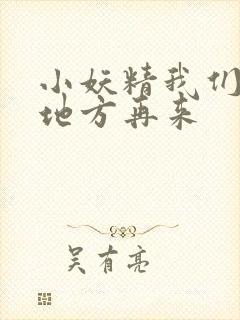 小妖精我们
地方再来
吴有亮